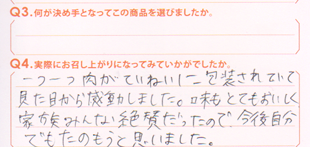 Q3.何が決め手となってこの商品を選びましたか。
Q4.実際にお召し上がりになってみていかがでしたか。
一つ一つ肉がていねいに包装されていて
見た目から感動しました。味もとてもおいしく
家族みんな絶賛だったので今後自分
でもたのもうと思いました。